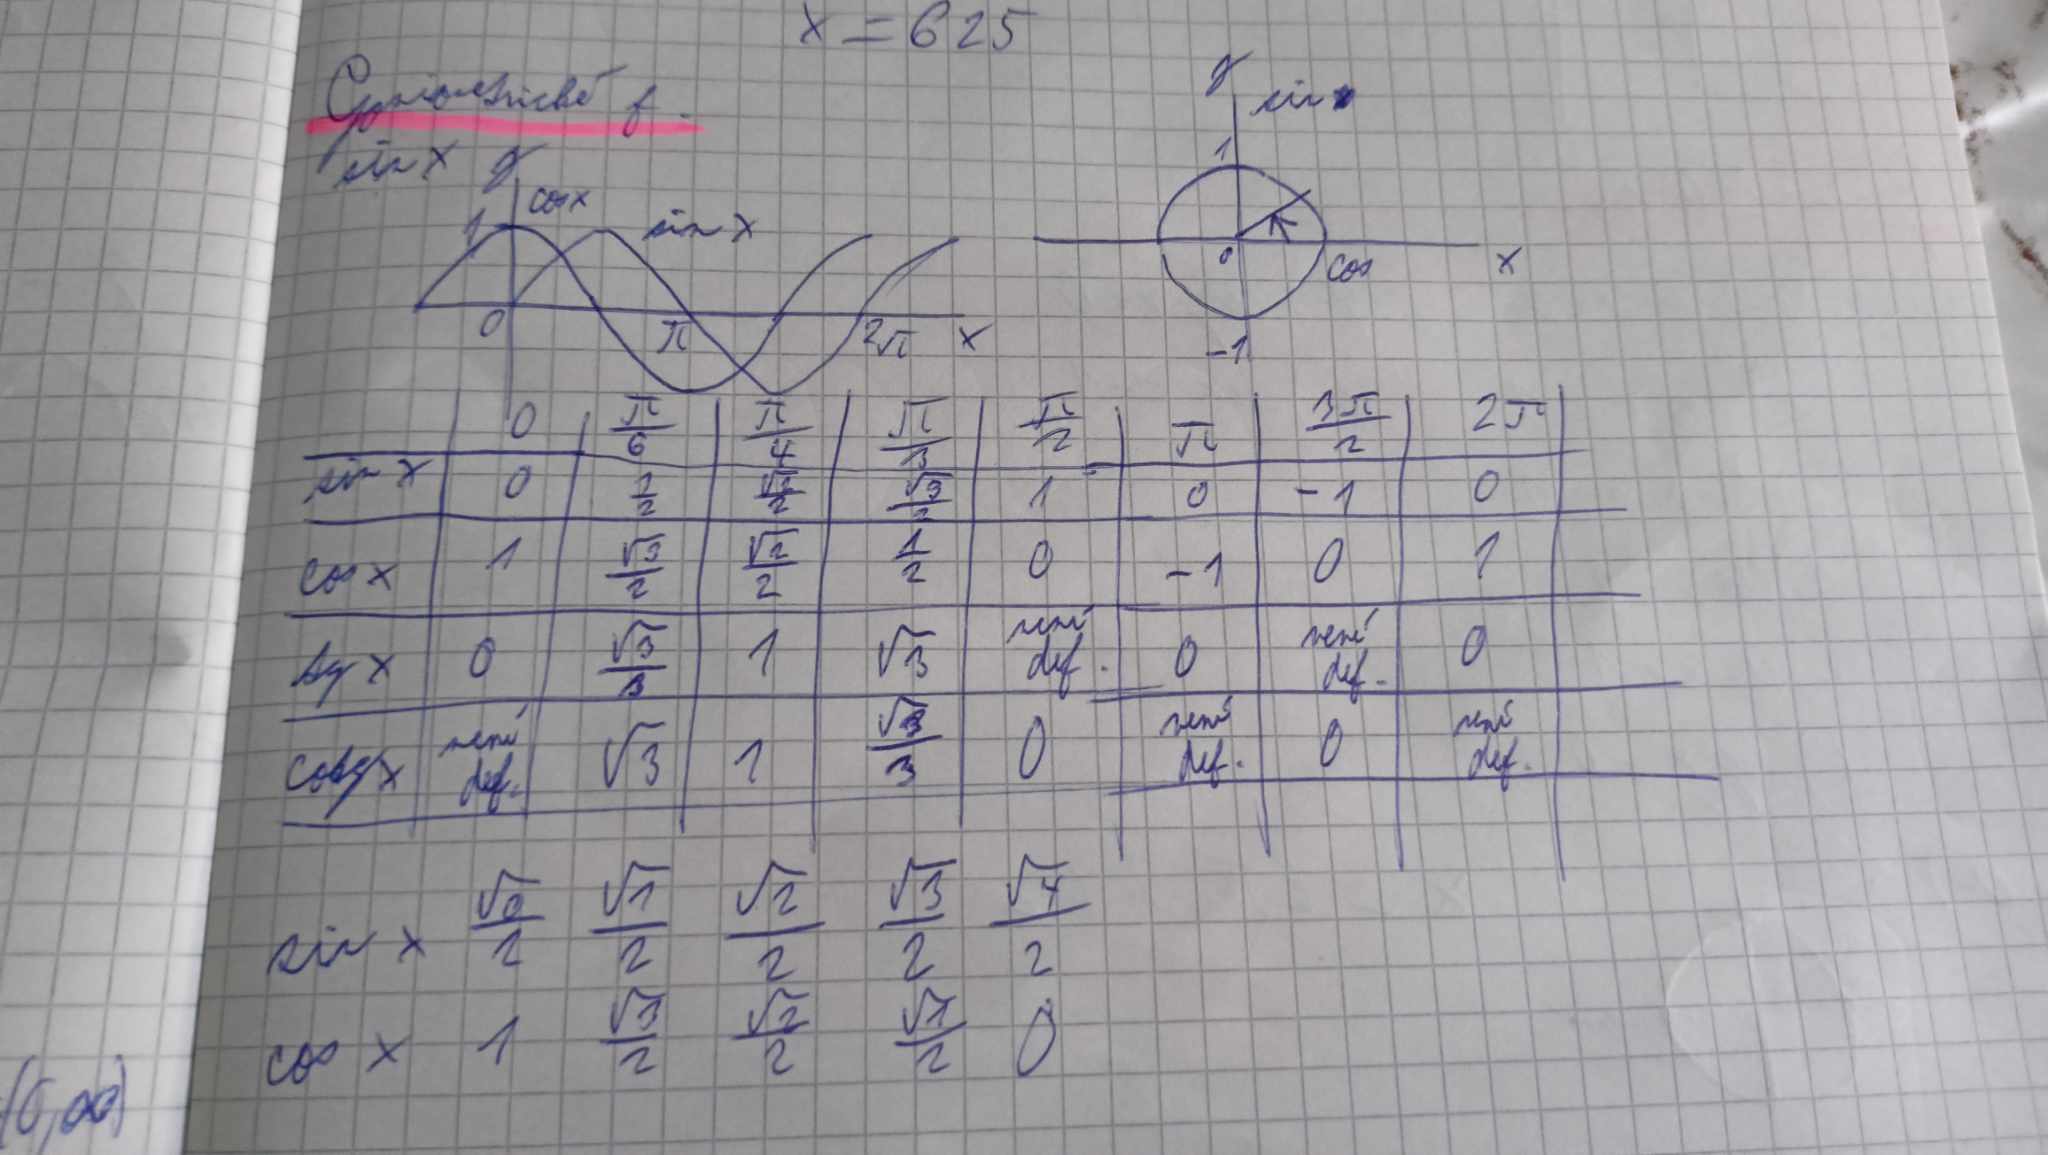 x = 625
Goniometrické f.
sin x
y
cos x
1
sin x
0
π
2π
x
y
sin
1
0
cos
x
-1
0 π/6 π/4 π/3 π/2 π 3π/2 2π
sin x 0 1/2 √2/2 √3/2 1 0 -1 0
cos x 1 √3/2 √2/2 1/2 0 -1 0 1
tg x 0 √3/3 1 √3 není def. 0 není def. 0
cotg x není def. √3 1 √3/3 0 není def. 0 není def.
sin x √0/2 √1/2 √2/2 √3/2 √4/2
cos x 1 √3/2 √2/2 √1/2 0
(0,∞)